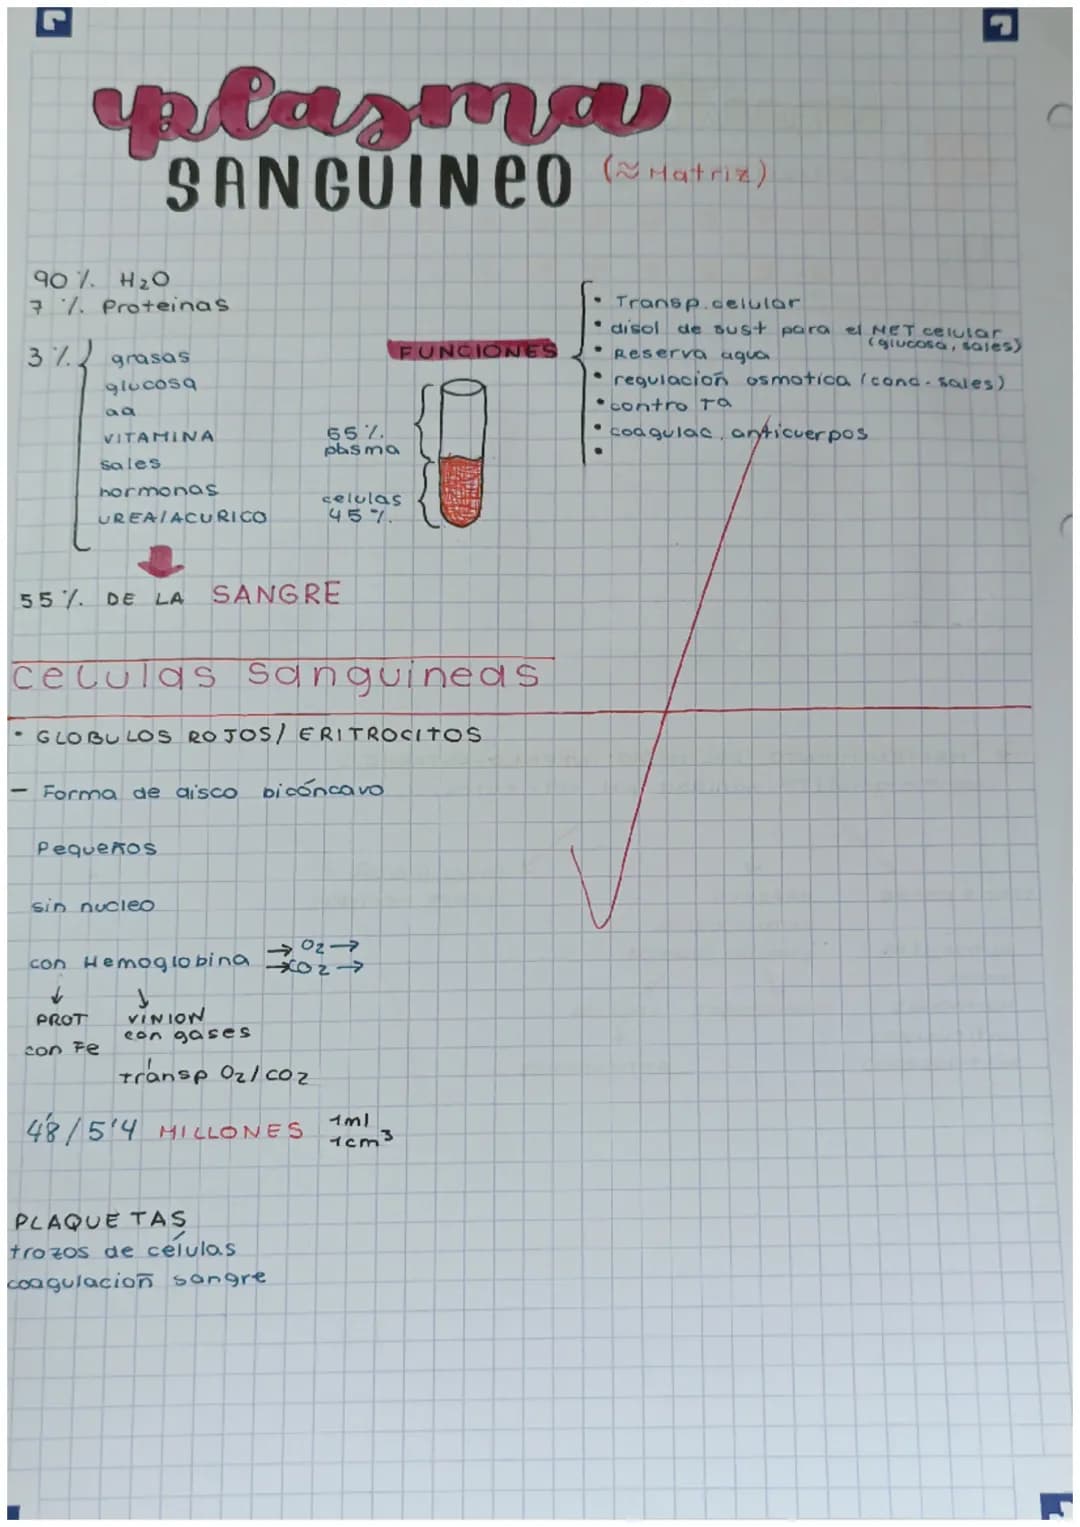 plasma
SANGUINEO (≈ Matriz)
90 %. H2O
7 %. Proteinas
3 %. { grasas
glucosa
aa
VITAMINA
sales
hormonas
UREA/ACURICO
55 %. DE LA SANGRE
FUNCIONES
55 %.
plasma
celulas
45 %.
• Transp. celular
• disol de sust para el MET celular
(glucosa, sales)
• Reserva agua
• regulacioñ osmotica (conc. sales)
• contro TA
• coagulac. anticuerpos
•
celulas sanguineas
• GLOBULOS ROJOS/ ERITROCITOS
- Forma de disco bicóncavo
Pequeños
sin nucleo
con Hemoglobina → O2 →
→ CO2 →
↓ ↓
PROT VINION
con Fe con gases
transp O2/CO2
4'8/5'4 MILLONES 1ml
1cm3
PLAQUETAS
trozos de células
coagulacioñ sangre